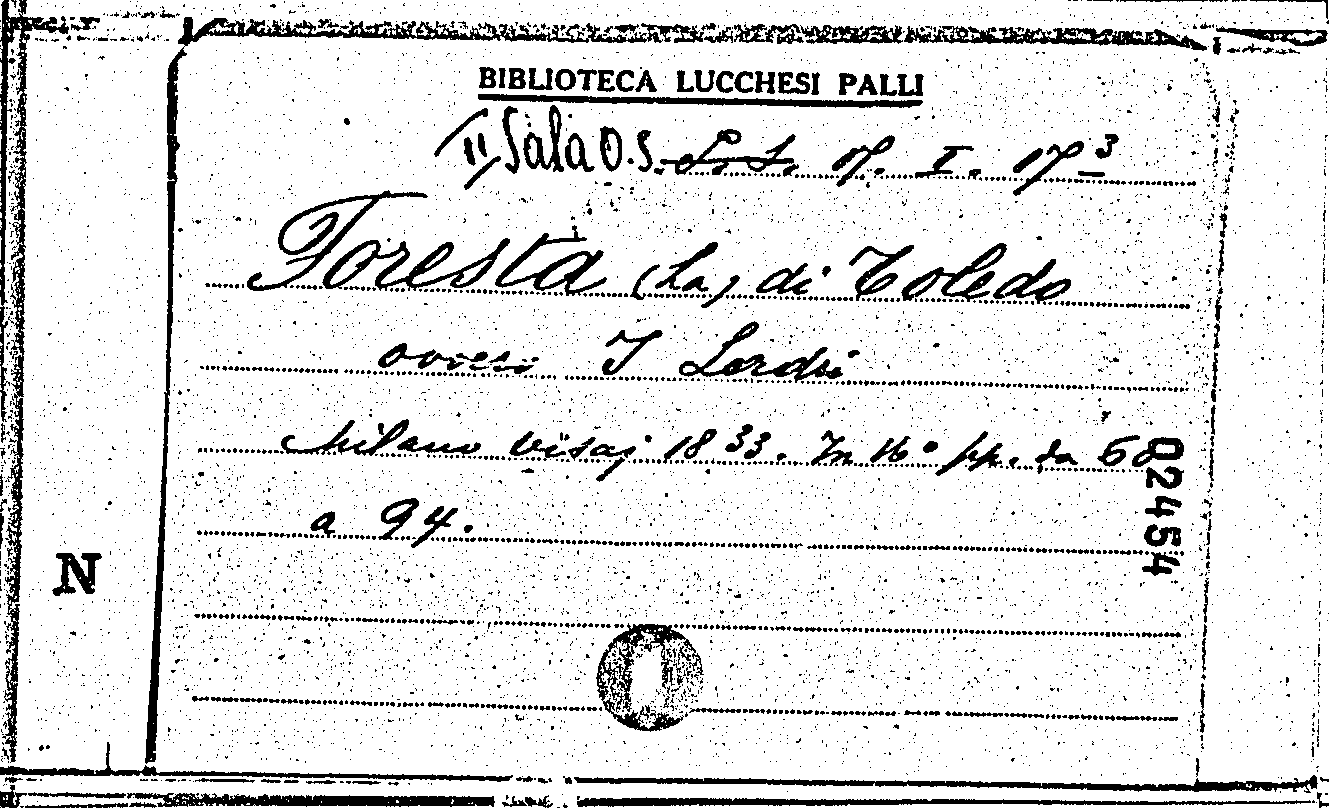 BIBLIOTECA LUCCHESI PALLI
II Sala O.S. L. L. 17. I. 17 3
Foresta (La) di Toledo
ovvero I Sordi
Milano Visaj 1833. In 16° pp. da 60
a 94.
02454
N